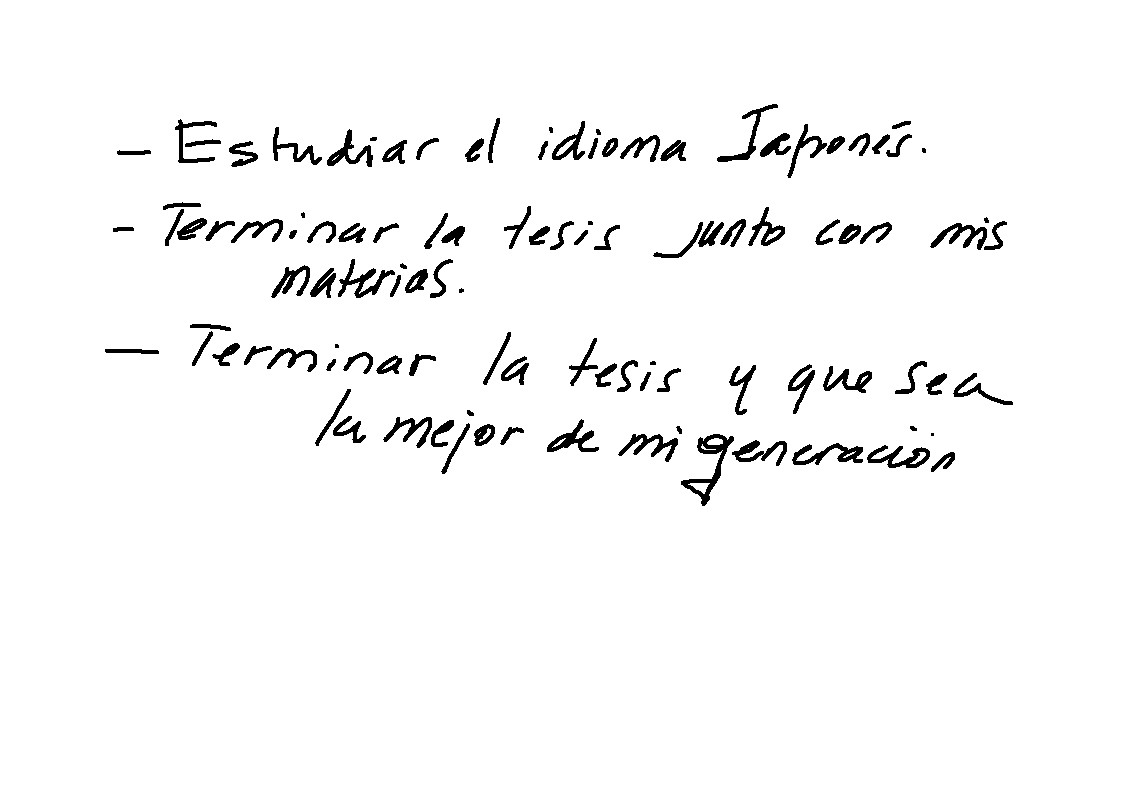 - Estudiar el idioma Japonés.
- Terminar la tesis junto con mis
materias.
- Terminar la tesis y que sea
la mejor de mi generación